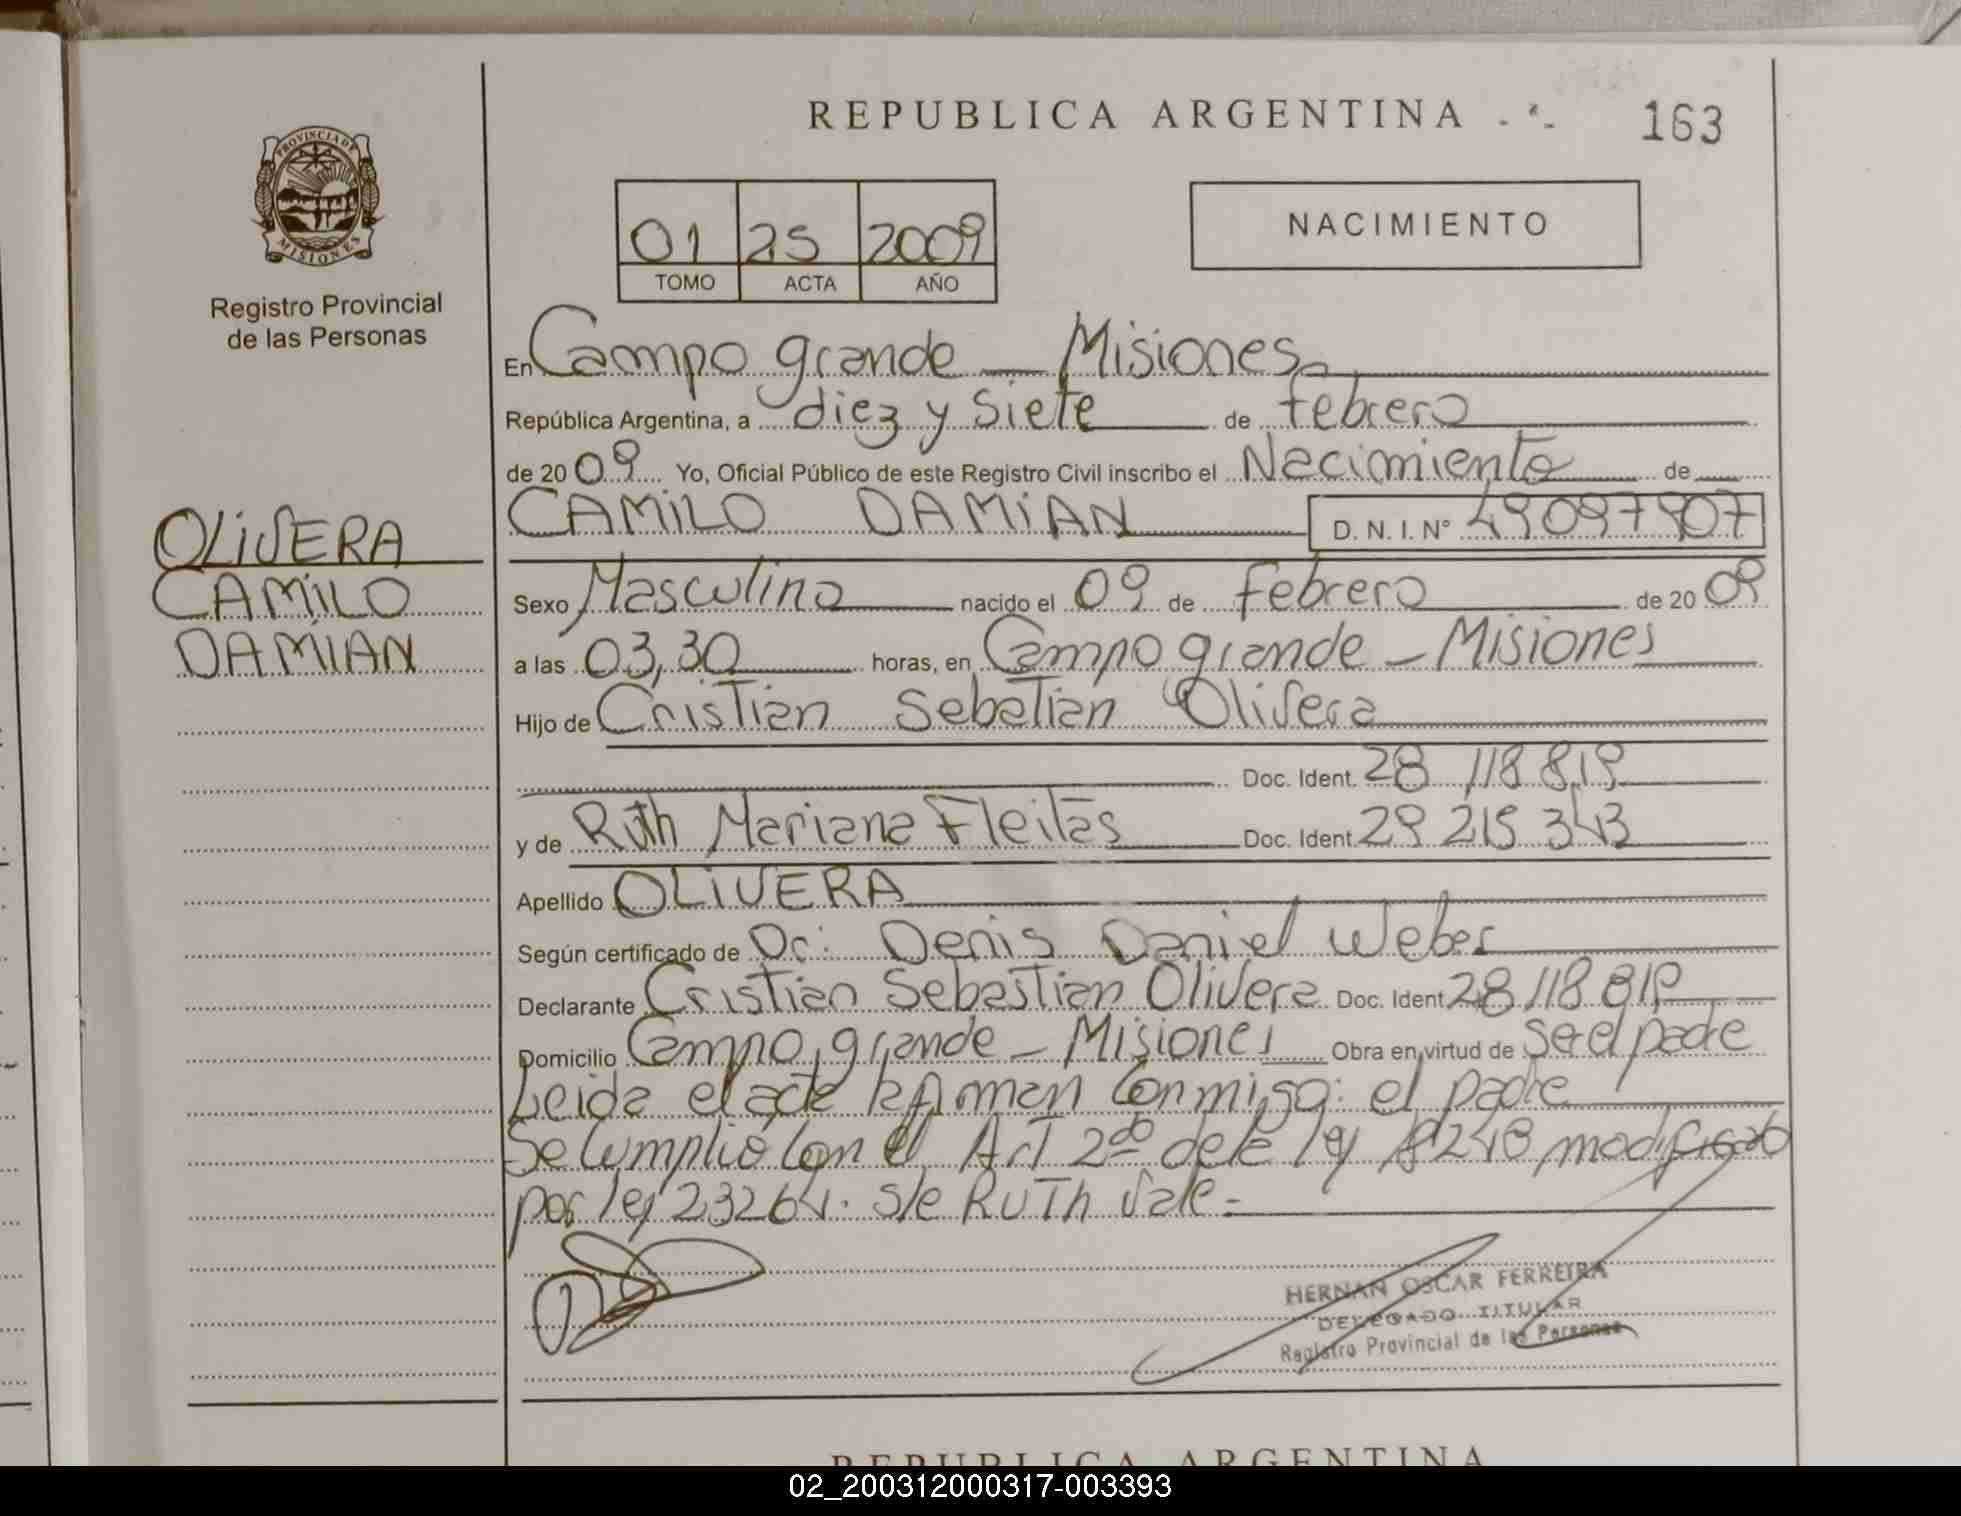 REPUBLICA ARGENTINA
163
PROVINCIA DE
MISIONES
Registro Provincial
de las Personas
01 25 2009
TOMO ACTA AÑO
NACIMIENTO
En Campo grande _ Misiones
República Argentina, a diez y siete de febrero
de 20 09 Yo, Oficial Público de este Registro Civil inscribo el Nacimiento de
CAMILO DAMIAN D. N. I. Nº 49097907
OLIVERA
CAMILO
DAMIAN
Sexo Masculino nacido el 09 de febrero de 20 09
a las 03,30 horas, en Campo grande _ Misiones
Hijo de Cristian Sebatian Olivera
Doc. Ident. 28 118 819
y de Ruth Mariana Fleitas Doc. Ident. 29 215 343
Apellido OLIVERA
Según certificado de Dr: Denis Daniel Weber
Declarante Cristian Sebastian Olivera Doc. Ident. 28 118 819
Domicilio Campo grande _ Misiones Obra en virtud de ser el padre
Leida el acta la firman conmigo: el padre
Se Cumplio con el Art 2do de la ley 18248 modificado
por ley 23264. s/e RUTh vale.-
HERNAN OSCAR FERREIRA
DELEGADO TITULAR
Registro Provincial de las Personas
REPUBLICA ARGENTINA
02_200312000317-003393